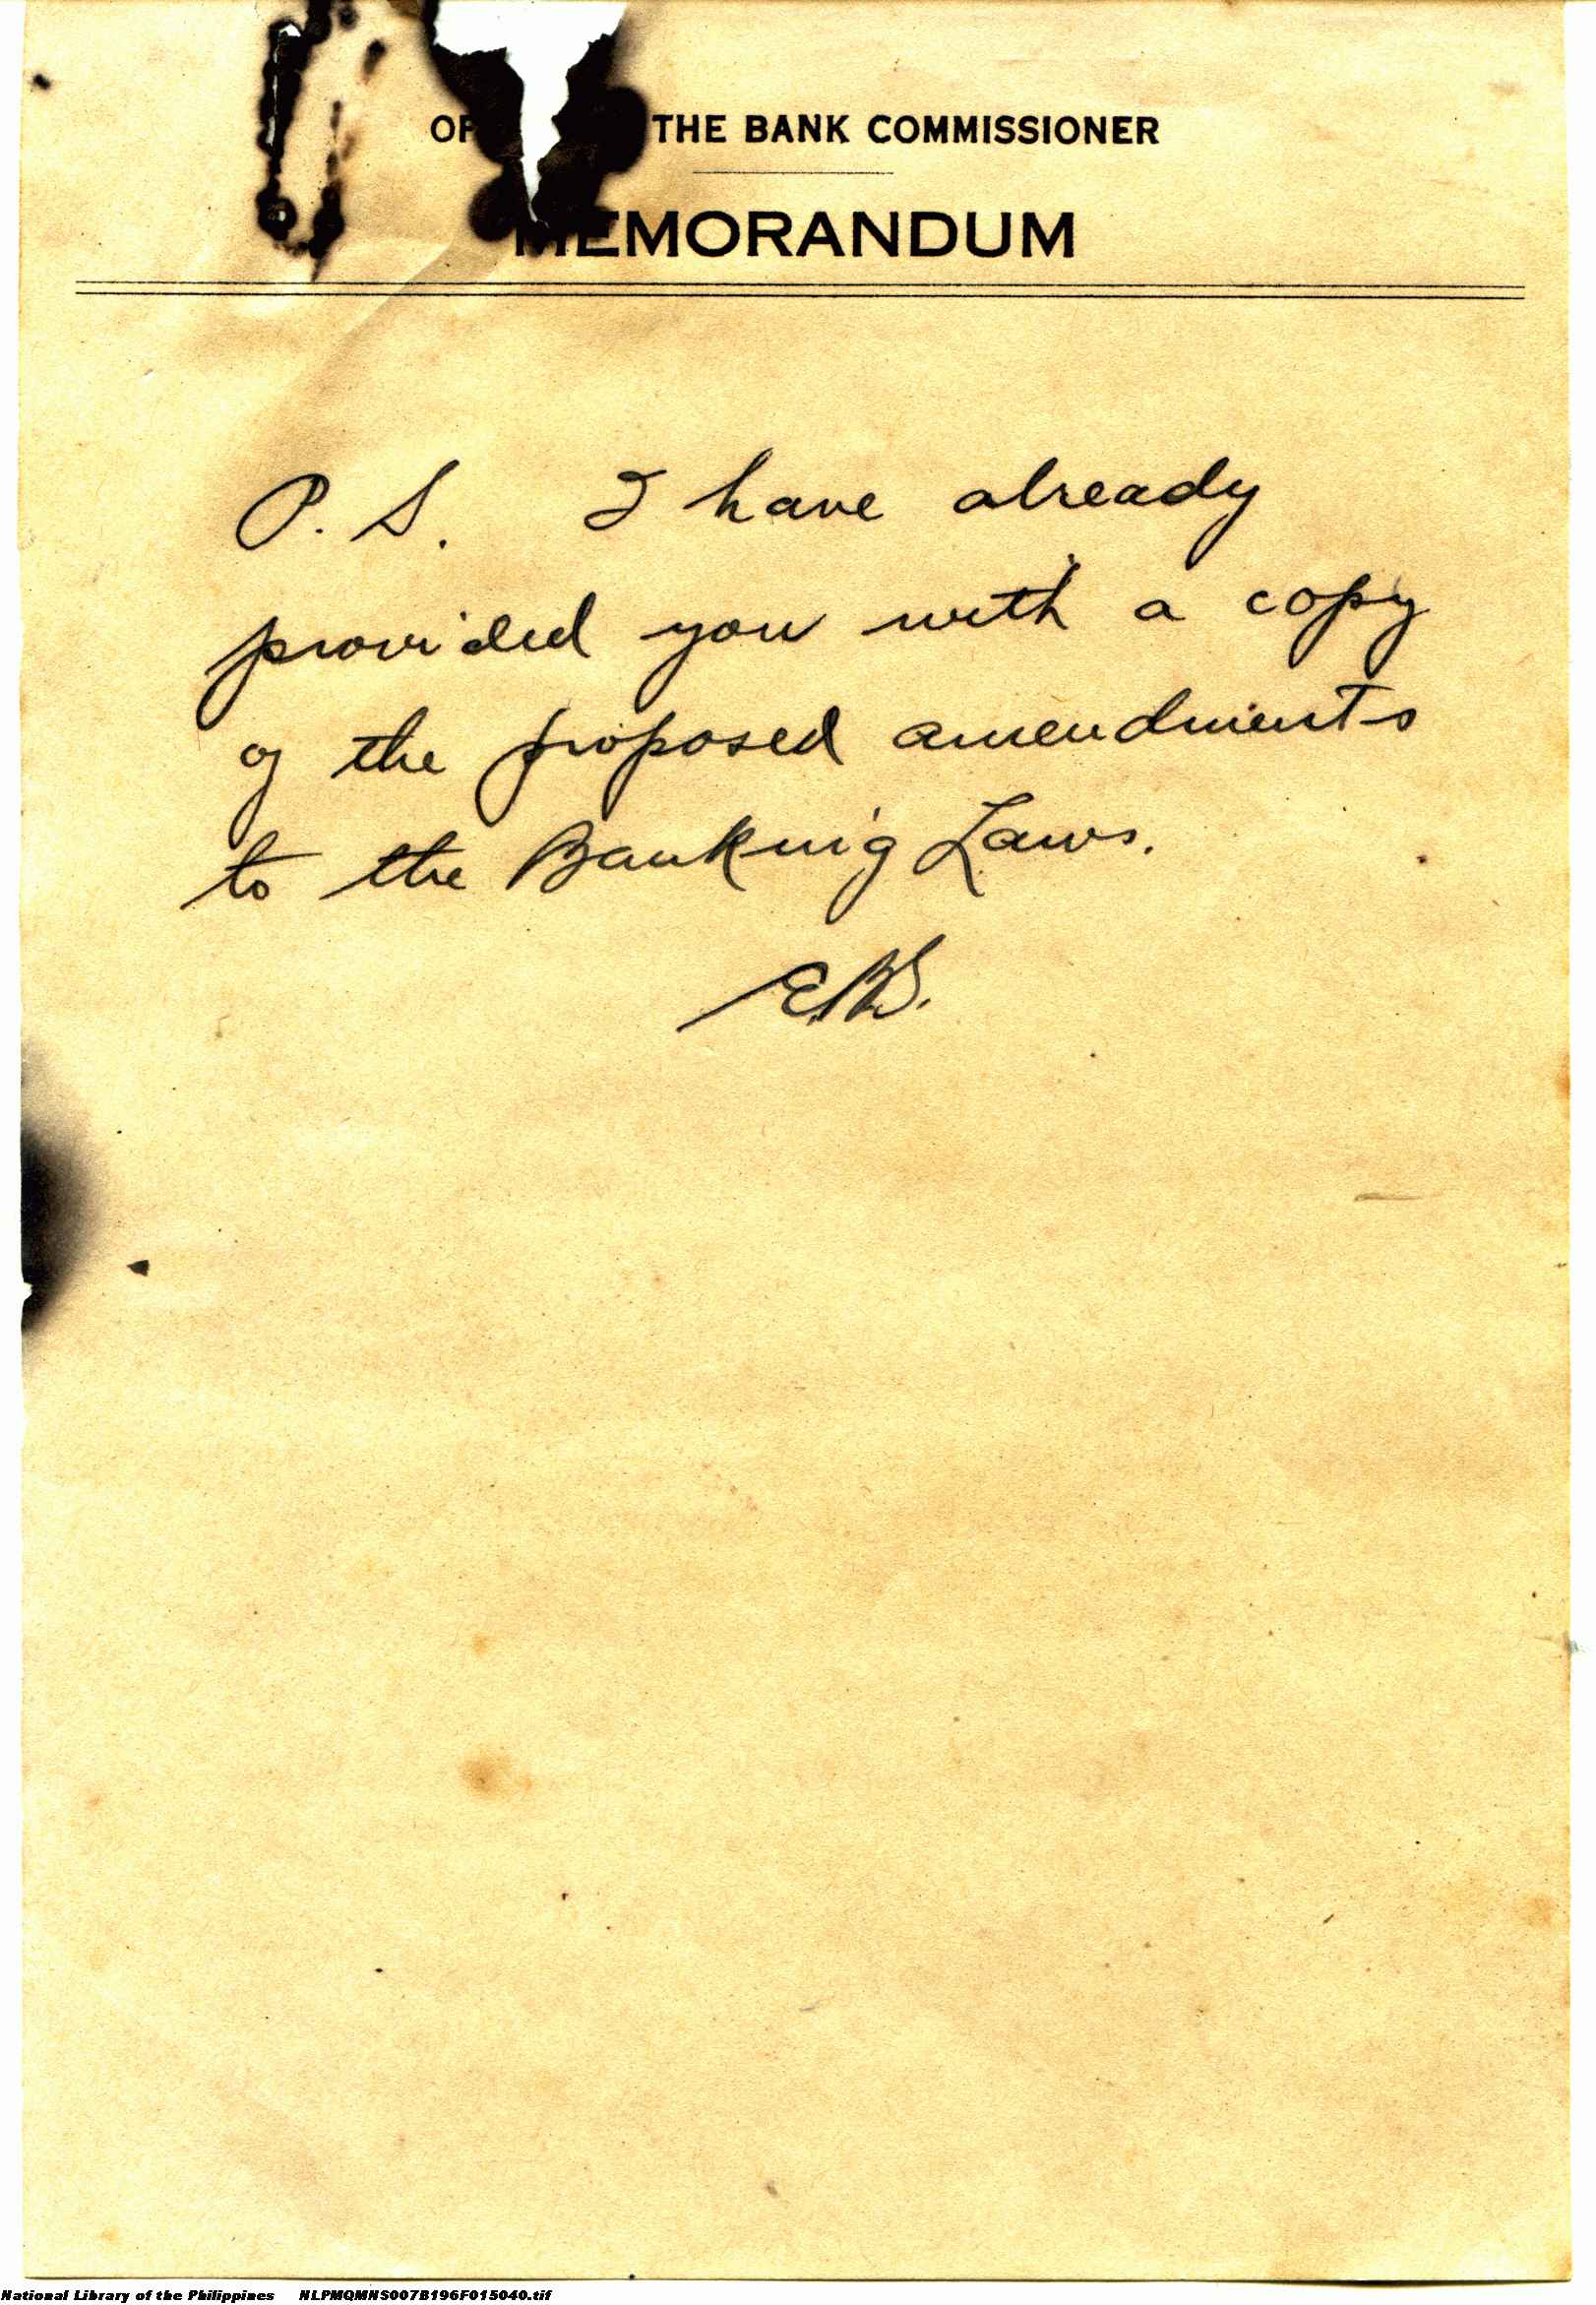 OF THE BANK COMMISSIONER
MEMORANDUM
P. S. I have already
provided you with a copy
of the proposed amendments
to the Banking Laws.
E.B.S.
National Library of the Philippines NLPMQMNS007B196F015040.tif